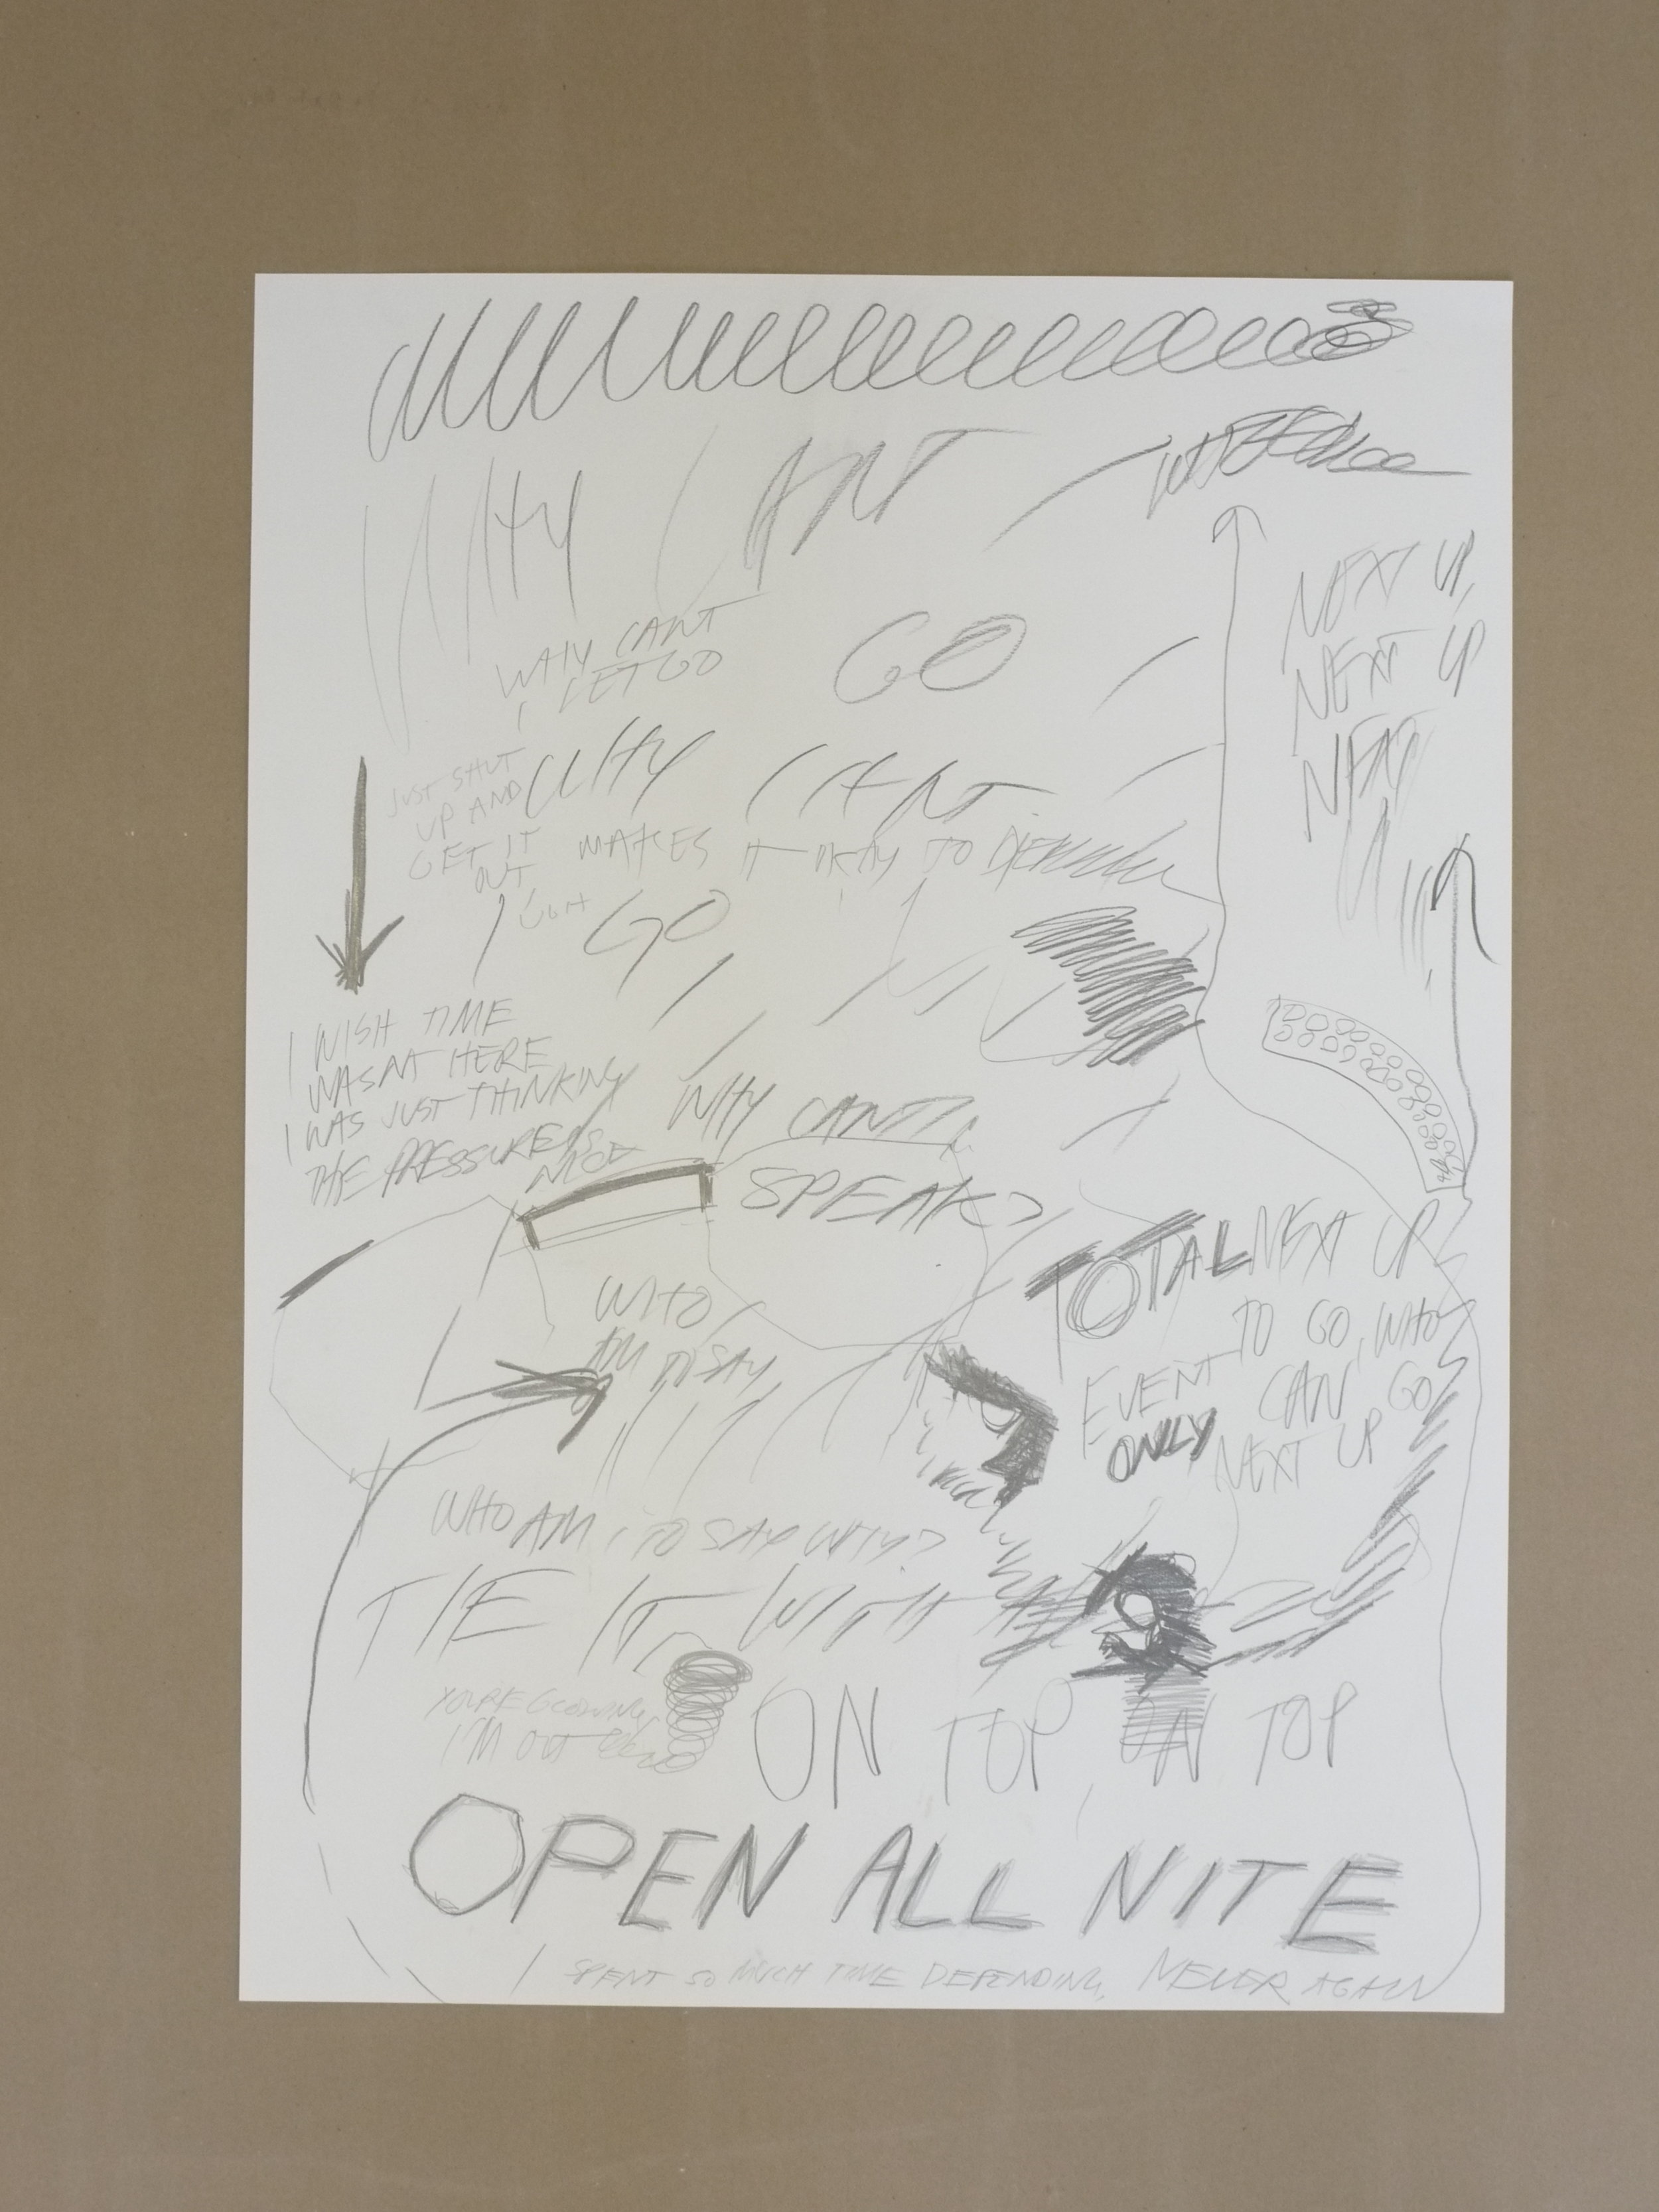 WHY CANT
GO
WHY CANT
I LET GO
NEXT UP,
NEXT UP
NEXT
JUST SHUT
UP AND
GET IT
OUT
UGH
WHY I CANT
MAKES IT OKAY TO
GO
I WISH TIME
WASNT HERE
I WAS JUST THINKING
THE PRESSURE IS
NICE
WHY CANT I
SPEAK?
WHO
AM I TO SAY
TOTAL
EVENT
ONLY
NEXT UP
TO GO, WHO
CAN GO
NEXT UP
WHO AM I TO SAY WHY?
TIE IT WITH
YOU'RE GLOWING,
I'M OUT
ON TOP, ON TOP
OPEN ALL NITE
I SPENT SO MUCH TIME DEPENDING, NEVER AGAIN